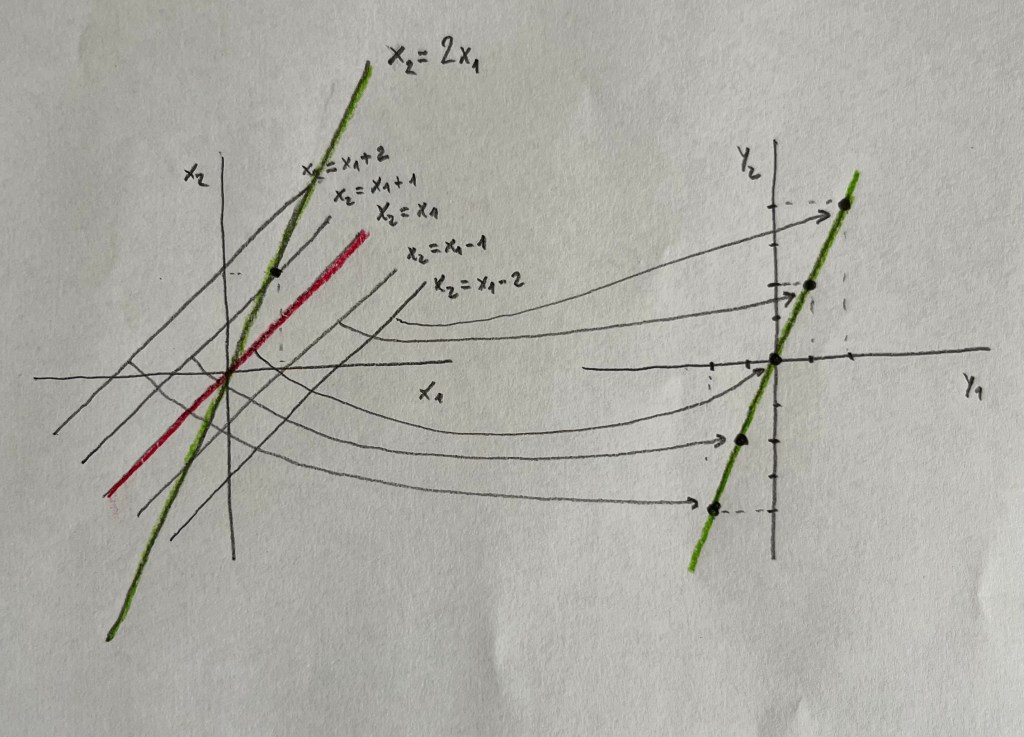 x₂ = 2x₁
x₂
x₂ = x₁ + 2
x₂ = x₁ + 1
x₂ = x₁
x₂ = x₁ - 1
x₂ = x₁ - 2
x₁
y₂
y₁